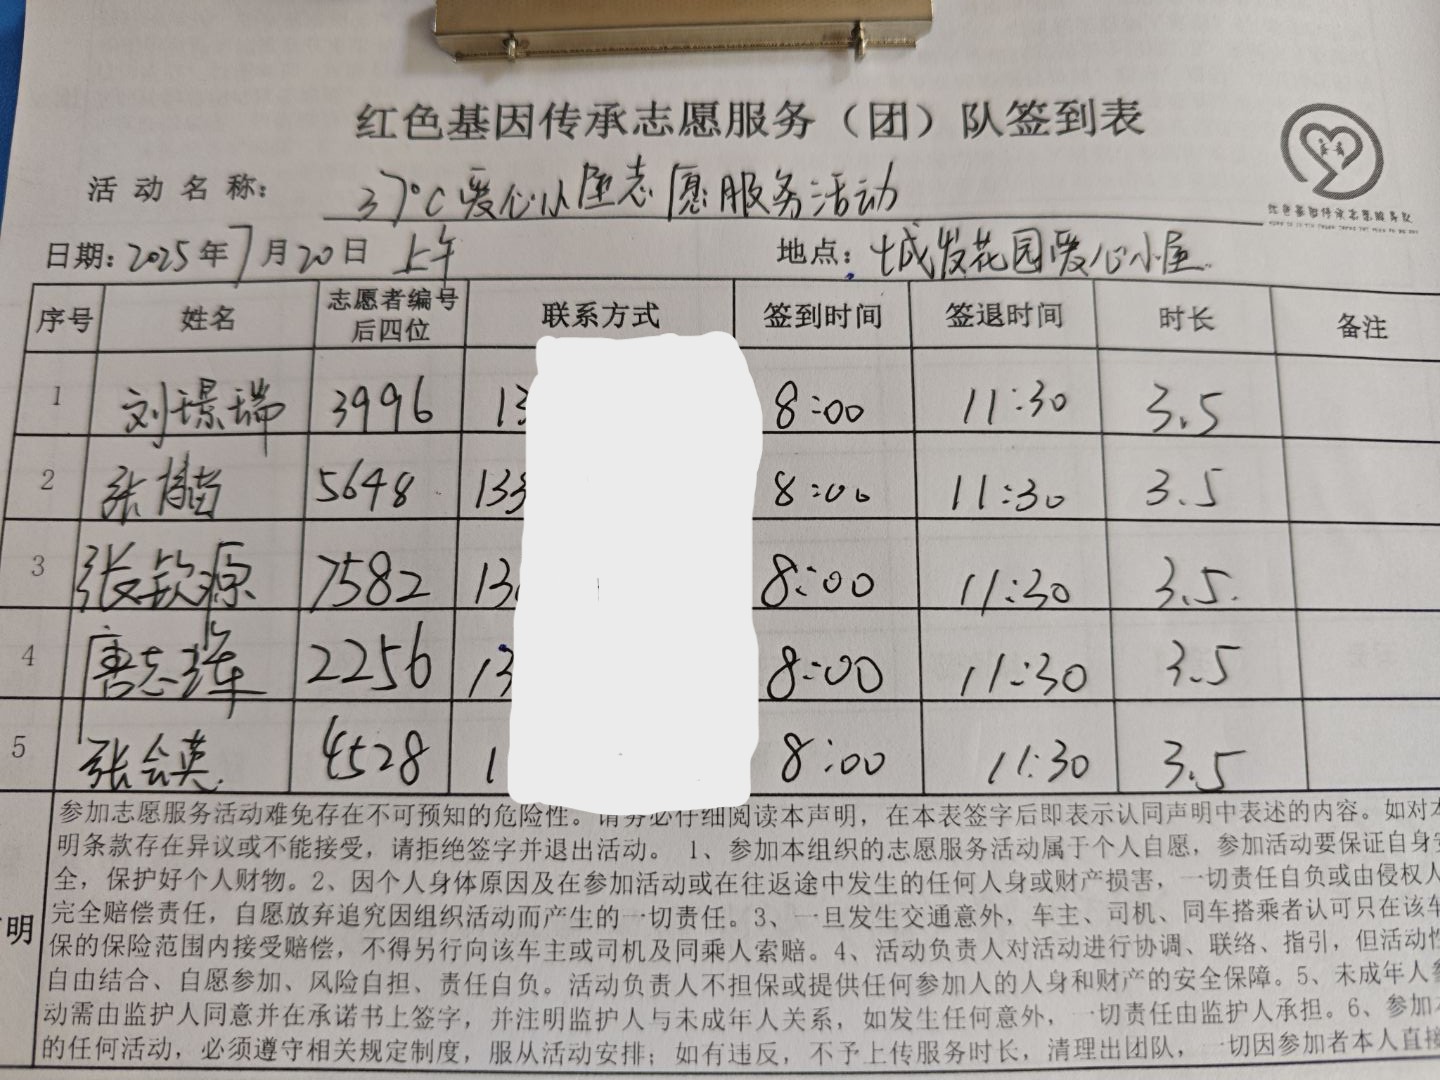 红色基因传承志愿服务（团）队签到表
活动名称：37°C爱心小屋志愿服务活动
日期：2025年7月20日 上午 地点：城发花园爱心小屋
序号 姓名 志愿者编号后四位 联系方式 签到时间 签退时间 时长 备注
1 刘璟瑞 3996 13 8:00 11:30 3.5
2 张 5648 133 8:00 11:30 3.5
3 张钦源 7582 13 8:00 11:30 3.5.
4 唐志 2256 13 8:00 11:30 3.5
5 张会英 4528 1 8:00 11:30 3.5
参加志愿服务活动难免存在不可预知的危险性。请务必仔细阅读本声明，在本表签字后即表示认同声明中表述的内容。如对本
明条款存在异议或不能接受，请拒绝签字并退出活动。 1、参加本组织的志愿服务活动属于个人自愿，参加活动要保证自身安
全，保护好个人财物。2、因个人身体原因及在参加活动或在往返途中发生的任何人身或财产损害，一切责任自负或由侵权人
完全赔偿责任，自愿放弃追究因组织活动而产生的一切责任。3、一旦发生交通意外，车主、司机、同车搭乘者认可只在该车
明
保的保险范围内接受赔偿，不得另行向该车主或司机及同乘人索赔。4、活动负责人对活动进行协调、联络、指引，但活动性
自由结合、自愿参加、风险自担、责任自负。活动负责人不担保或提供任何参加人的人身和财产的安全保障。5、未成年人参
动需由监护人同意并在承诺书上签字，并注明监护人与未成年人关系，如发生任何意外，一切责任由监护人承担。6、参加本
的任何活动，必须遵守相关规定制度，服从活动安排；如有违反，不予上传服务时长，清理出团队，一切因参加者本人直接